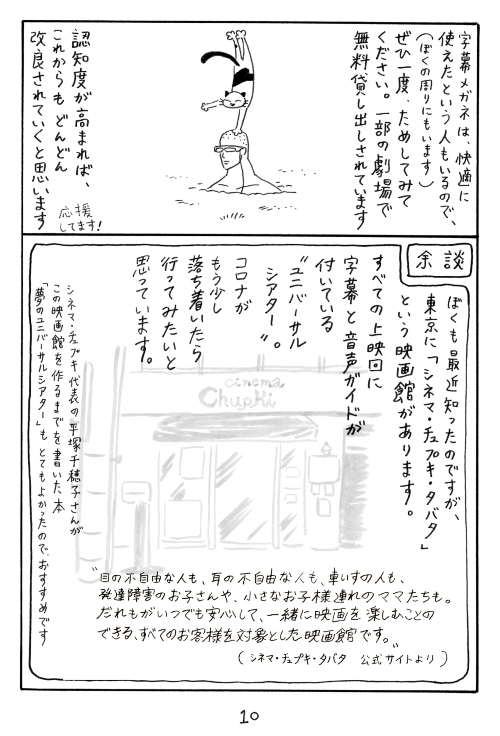 字幕メガネは、快適に
使えたという人もいるので、
(ぼくの周りにもいます)
ぜひ一度、ためしてみて
ください。一部の劇場で
無料貸し出しされています
認知度が高まれば、
これからも どんどん
改良されていくと思います
応援
してます!
余談
ぼくも最近知ったのですが、
東京に「シネマ・チュプキ・タバタ」
という映画館があります。
すべての上映回に
字幕と音声ガイドが
付いている
“ユニバーサル
シアター”。
コロナが
もう少し
落ち着いたら
行ってみたいと
思っています。
cinema
Chupki
シネマ・チュプキ代表の平塚千穂子さんが
この映画館を作るまでを書いた本
「夢のユニバーサルシアター」も とてもよかったので、おすすめです
“目の不自由な人も、耳の不自由な人も、車いすの人も、
発達障害のお子さんや、小さなお子様連れのママたちも。
だれもがいつでも安心して、一緒に映画を楽しむことの
できる、すべてのお客様を対象とした映画館です。”
(シネマ・チュプキ・タバタ 公式サイトより)
10